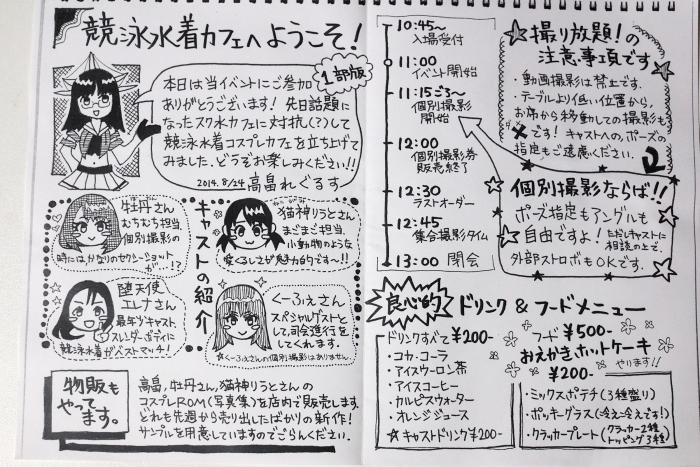 競泳水着カフェへようこそ!
1部版
本日は当イベントにご参加
ありがとうございます!先日話題に
なったスク水カフェに対抗(?)して
競泳水着コスプレカフェを立ち上げて
みました。どうぞお楽しみください!!
2014.8/24 高畠れぐるす
キャストの紹介
牡丹さん
むちむち担当。
個別撮影の
時にはかなりのセクシーショット
が…!?
猫神りうとさん
まごまご担当。
小動物のような
愛くるしさが魅力的です〜!!
堕天使
エレナさん
最年少キャスト。
スレンダーボディに
競泳水着がベストマッチ!
くーふぇさん
スペシャルゲストと
して司会進行を
してくれます。
☆くーふぇさんの個別撮影はありません
物販も
やって
ます。
高畠、牡丹さん、猫神りうとさんの
コスプレROM(写真集)を店内で販売します。
どれも先週から売り出したばかりの新作!
サンプルを用意していますのでごらんください。
10:45〜
入場受付
11:00
イベント開始
11:15ごろ〜
個別撮影
開始
12:00
個別撮影券
販売終了
12:30
ラストオーダー
12:45
集合撮影タイム
13:00 閉会
撮り放題!の
注意事項です
・動画撮影は禁止です。
・テーブルより低い位置から、
お席から移動しての撮影も
✕です!キャストへの、ポーズの
指定もご遠慮ください。
個別撮影ならば!!
ポーズ指定もアングルも
自由ですよ!ただしキャストに
相談の上で。
外部ストロボもOKです。
良心的 ドリンク & フードメニュー
ドリンクすべて ¥200-
・コカ・コーラ
・アイスウーロン茶
・アイスコーヒー
・カルピスウォーター
・オレンジジュース
☆キャストドリンク¥200-
フード ¥500-
おえかきホットケーキ
やります!!
¥200-
・ミックスポテチ(3種盛り)
・ポッキーグラス(冷え冷えです!)
・クラッカープレート(クラッカー2種
トッピング3種)